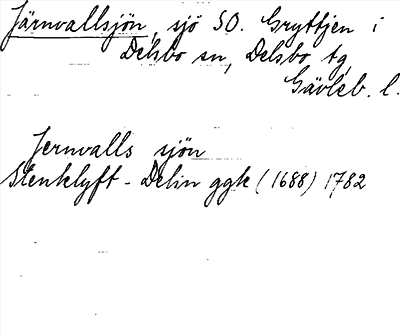 Järnvallsjön, sjö SO. Gryttjen i
Delsbo sn, Delsbo tg,
Gävleb. l.
Jernvalls sjön
Stenklyft - Delin ggk (1688) 1782